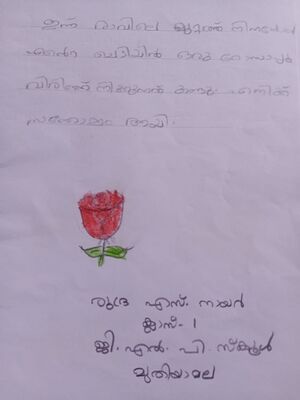 ഇന്ന് രാവിലെ മുറ്റത്ത്
എന്റെ ചെടിയിൽ ഒരു റോസാപ്പൂ
വിരിഞ്ഞ് നിക്കുന്നത് കണ്ടു. എനിക്ക്
സന്തോഷം ആയി.
രുദ്ര എസ്. നായർ
ക്ലാസ്. 1
ജി. എൽ. പി. സ്കൂൾ
മുതിയാമല